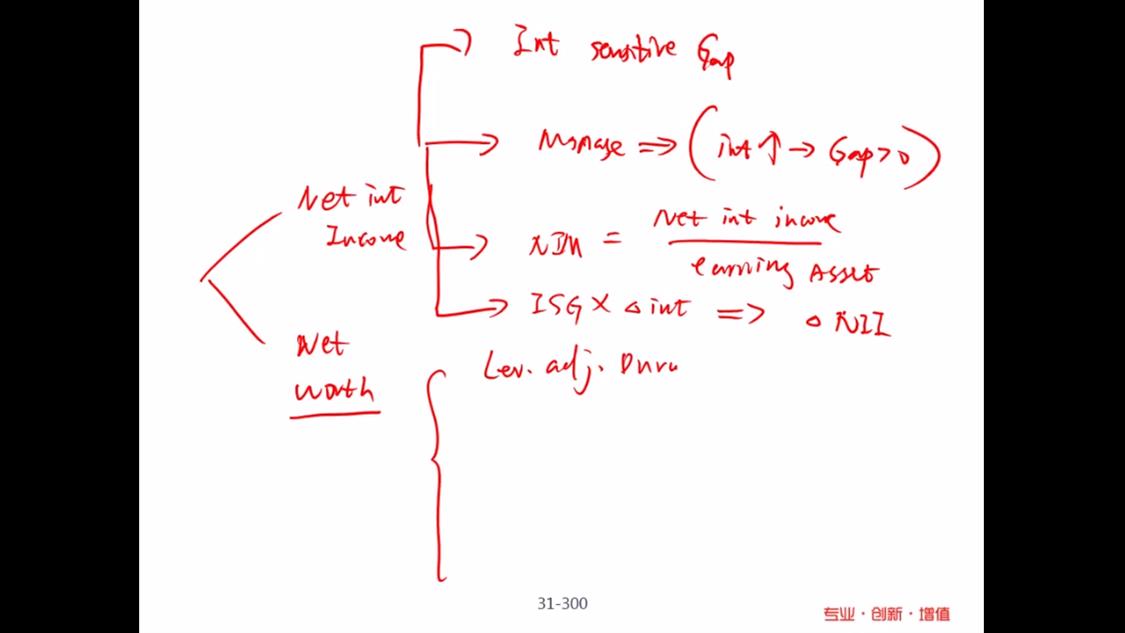 Int sensitive Gap
Manage => (int↑ → Gap>0)
Net int
Income
NIM = Net int income
earning Asset
ISG × △int => △NII
Net
Worth
Lev. adj. Dura
31-300
专业·创新·增值